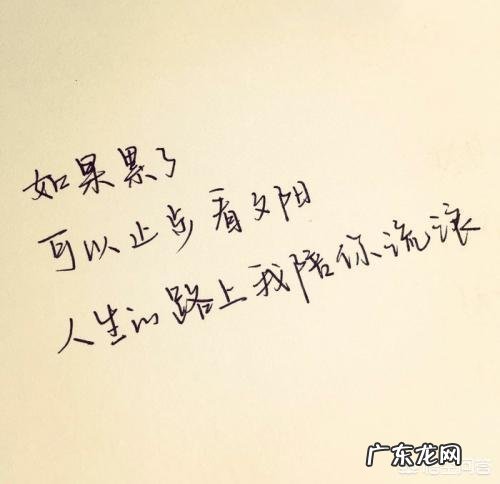 如果累了
可以止步看夕阳
人生的路上我陪你流浪
广东龙网